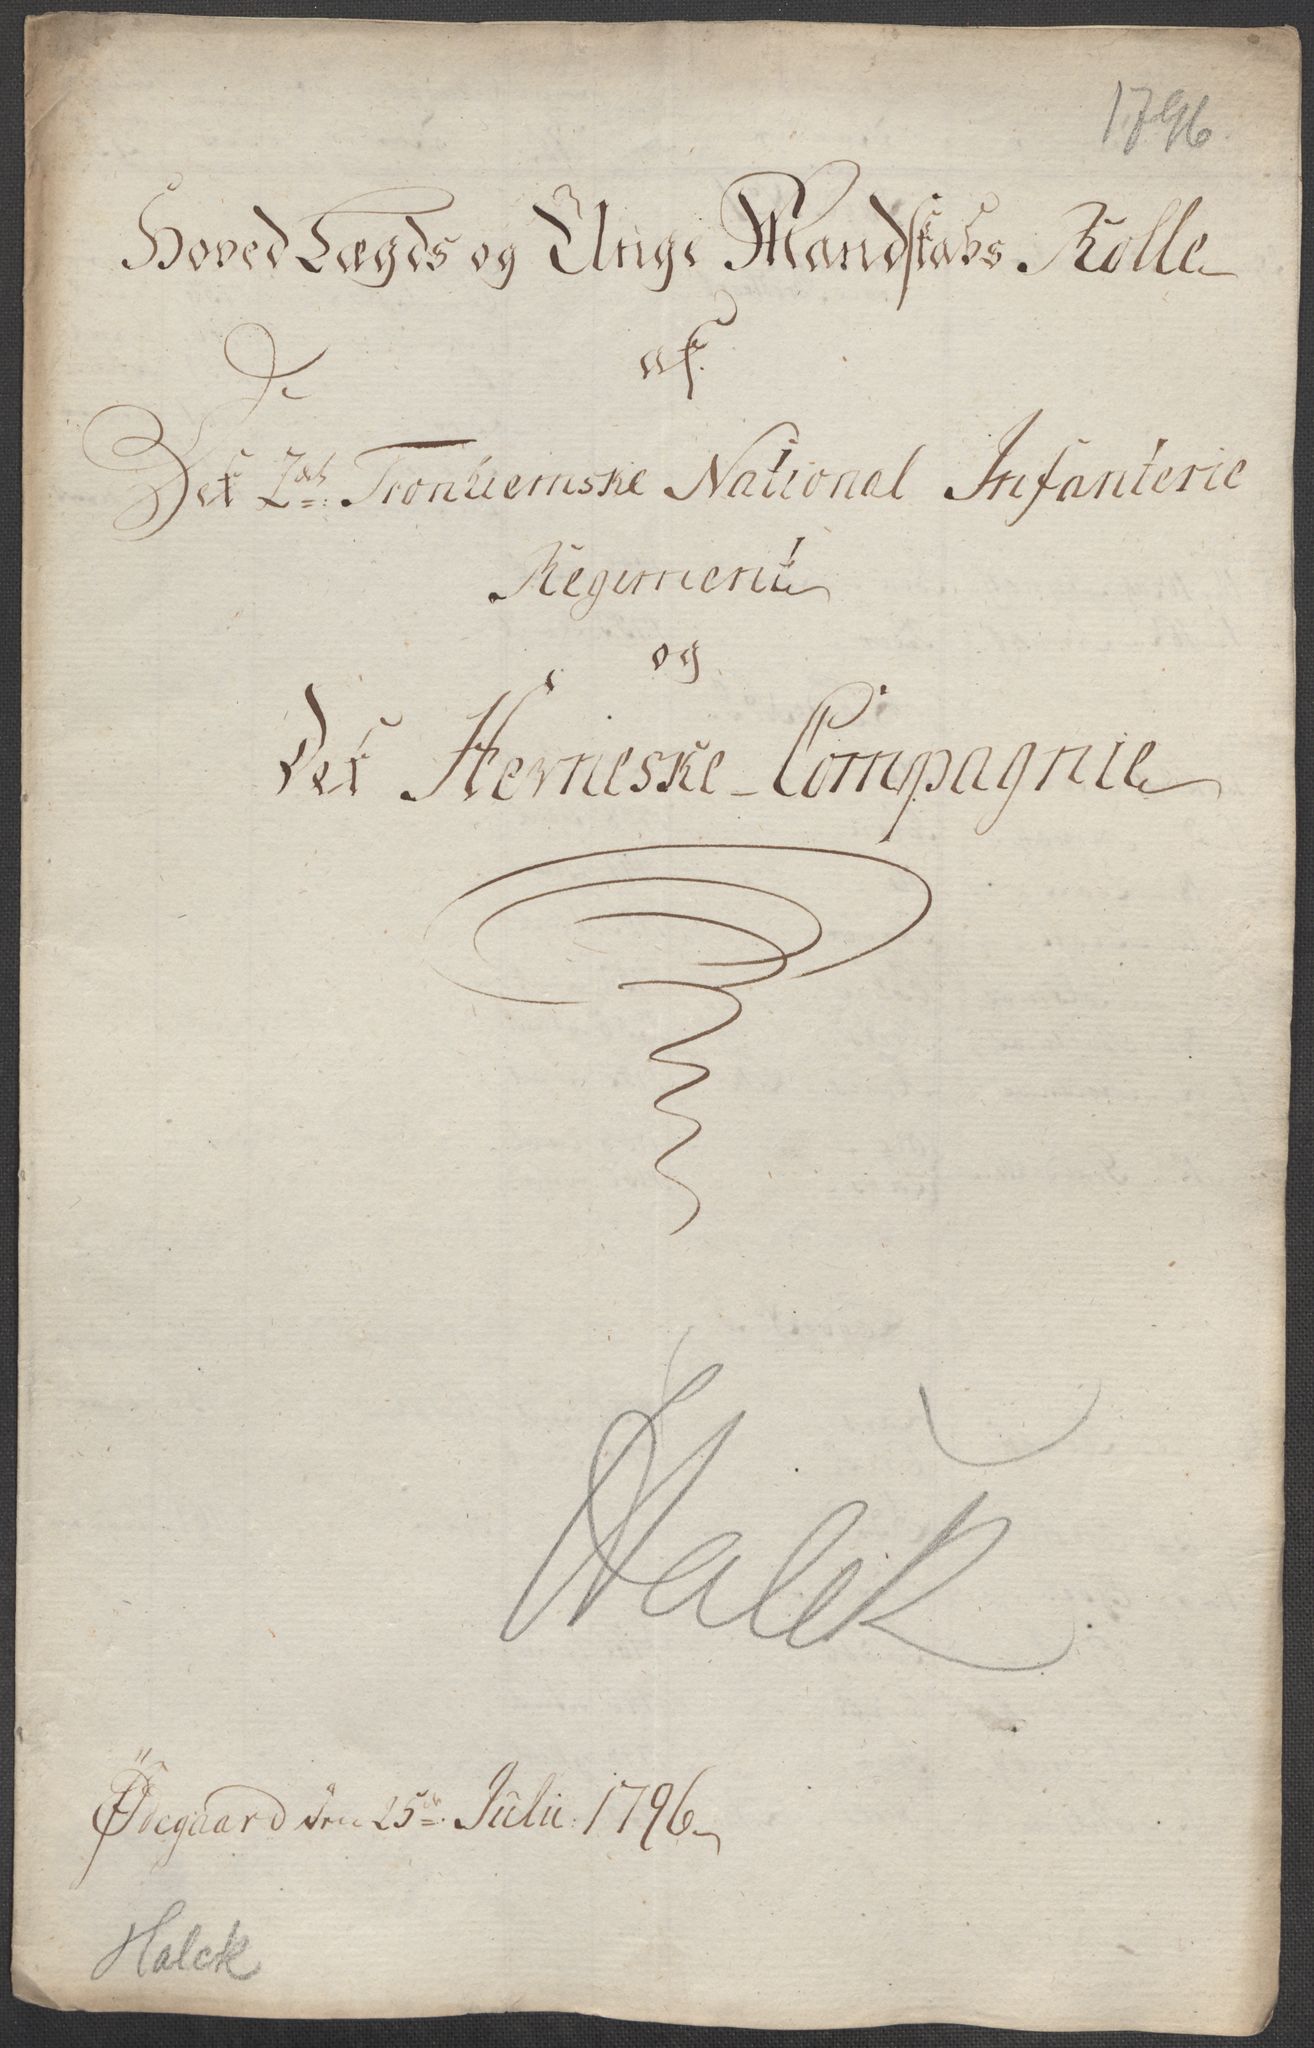 1796.
Hoved Lægds og Unge Mandskabs Rolle
af.
Det 2det Tronhiemske National Infanterie
Regiment
og
Det Hevneske Compagnie
Halck
Ödegaard den 25de Julii: 1796
Halck